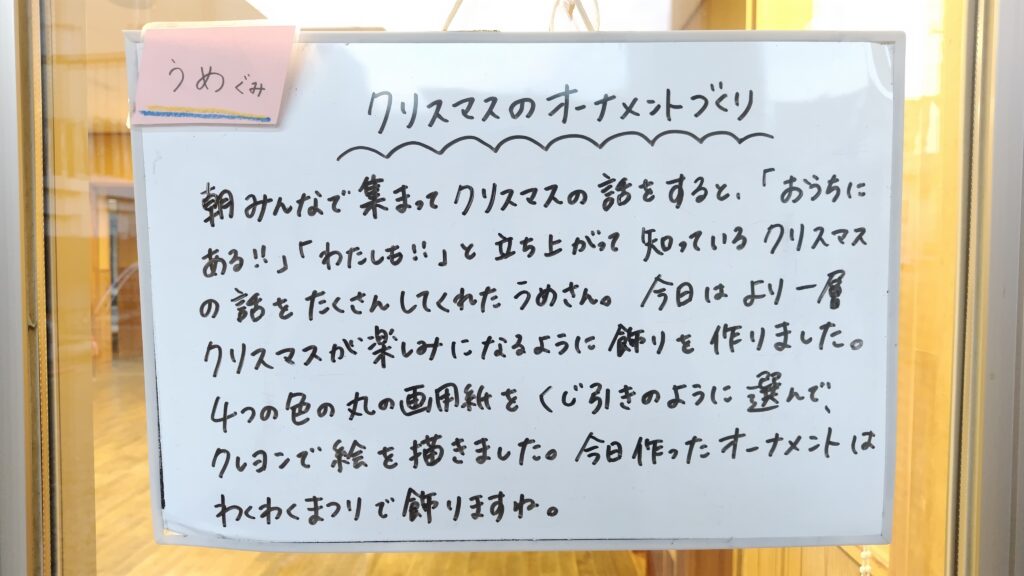 うめぐみ
クリスマスのオーナメントづくり
朝みんなで集まってクリスマスの話をすると、「おうちに
ある!!」「わたしも!!」と立ち上がって知っているクリスマス
の話をたくさんしてくれたうめさん。今日はより一層
クリスマスが楽しみになるように飾りを作りました。
4つの色の丸の画用紙をくじ引きのように選んで、
クレヨンで絵を描きました。今日作ったオーナメントは
わくわくまつりで飾りますね。